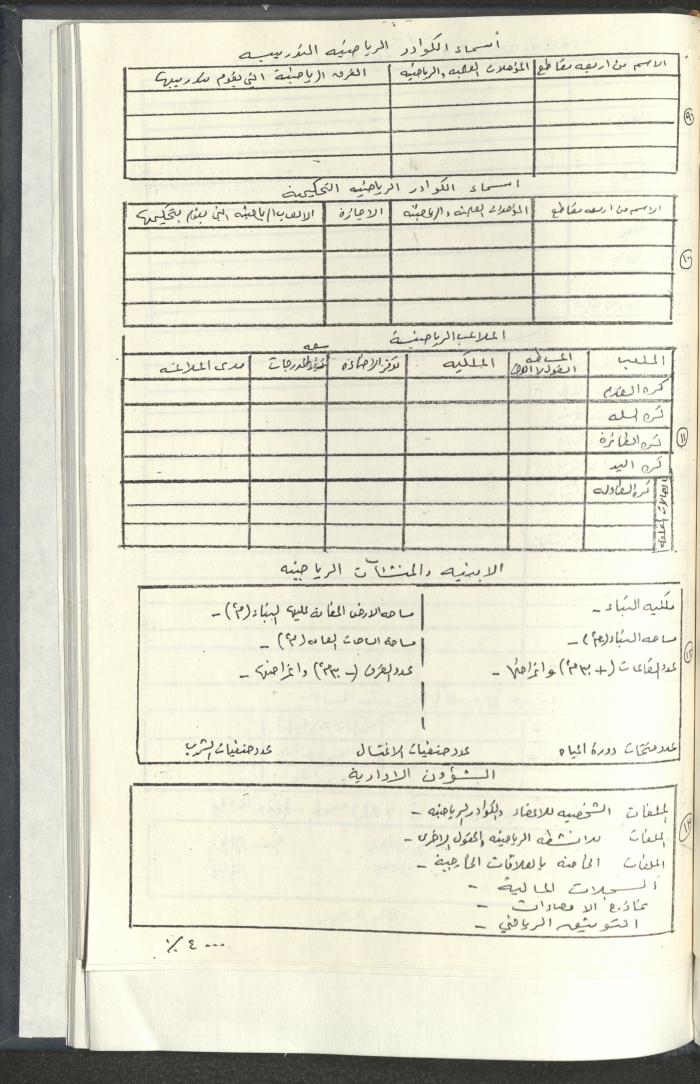 أسماء الكوادر الرياضية التدريبية
الاسم من اربعه مقاطع | المؤهلات العلمية والرياضية | الفرق الرياضية التي يقوم بتدريبها
٩
اسماء الكوادر الرياضية التحكيمية
الاسم من اربعه مقاطع | المؤهلات العلمية والرياضية | الاجازة | الالعاب الرياضية التي يقوم بتحكيمها
١٠
الملاعب الرياضية
الملعب | الملكية | توفر الاضاءة | سعه المدرجات | مدى الملائمة
كره القدم
كره السله
كره الطائرة
١١
كره اليد
كره الطاولة
الابنيه والمنشآت الرياضيه
ملكيه البناء - | مساحه الارض المقامة عليها البناء (م٢) -
مساحه البناء (م٢) - | مساحة الساحات العامه (م٢) -
١٢
عدد القاعات (+ ٣٠ م٢) واغراضها - | عدد الغرف (- ٣٠ م٢) واغراضها -
دورة المياه | عدد حنفيات الاغتسال | عدد حنفيات الشرب
الشؤون الادارية
الملفات الشخصيه للاعضاء والكوادر الرياضيه -
الملفات للانشطه الرياضيه والحقول الاخرى -
١٣
الملفات الخاصة بالعلاقات الخارجية -
السجلات المالية -
نماذج الاحصاءات -
التوثيق الرياضي -
٤ ....